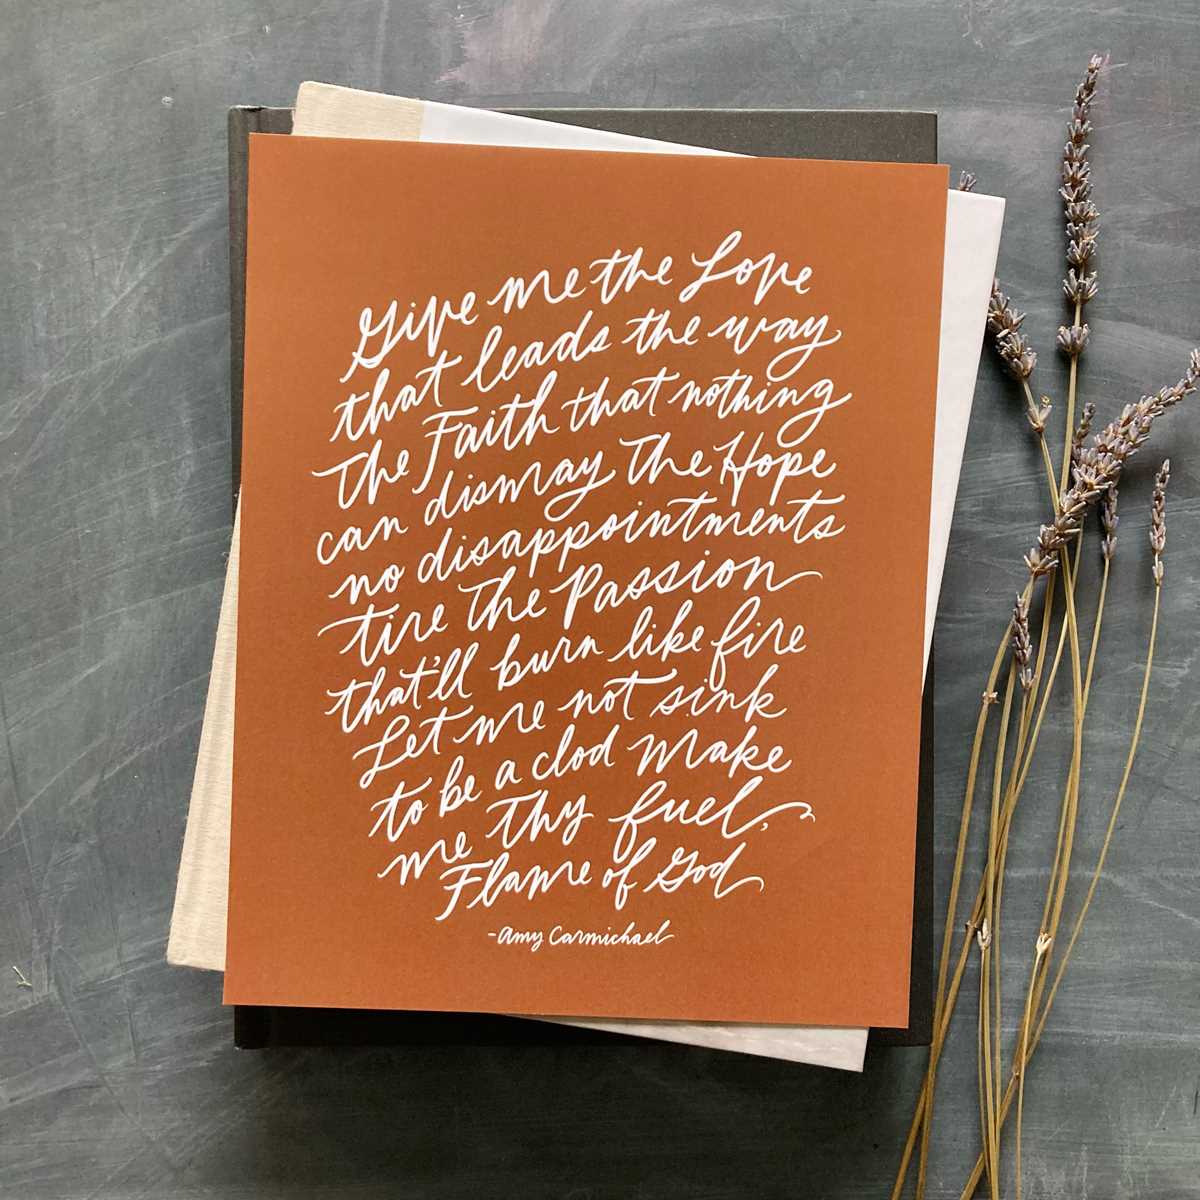 Give me the Love
that leads the way
The Faith that nothing
can dismay The Hope
no disappointments
tire The Passion
that'll burn like fire
Let me not sink
to be a clod Make
me Thy fuel,
Flame of God
-Amy Carmichael